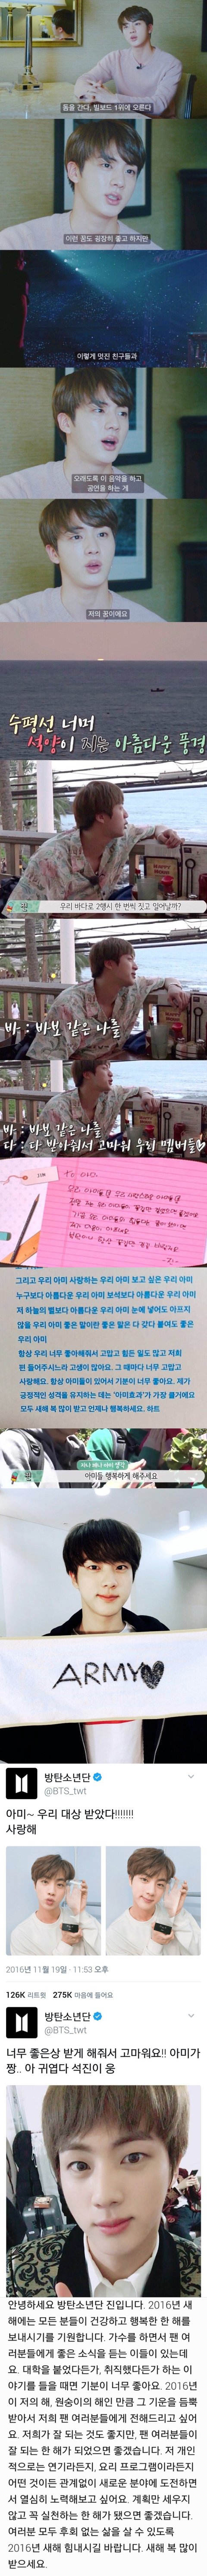 돔을 간다, 빌보드 1위에 오른다
이런 꿈도 굉장히 좋고 하지만
이렇게 멋진 친구들과
오래도록 이 음악을 하고
공연을 하는 게
저의 꿈이에요
수평선 너머
석양이 지는 아름다운 풍경
우리 바다로 2행시 한 번씩 짓고 일어날까?
바 : 바보 같은 나를
바 : 바보 같은 나를
다 : 다 받아줘서 고마워 우리 멤버들♡
그리고 우리 아미 사랑하는 우리 아미 보고 싶은 우리 아미
누구보다 아름다운 우리 아미 보석보다 아름다운 우리 아미
저 하늘의 별보다 아름다운 우리 아미 눈에 넣어도 아프지
않을 우리 아미 좋은 말이란 좋은 말은 다 갖다 붙여도 좋은
우리 아미
항상 우리 너무 좋아해줘서 고맙고 힘든 일도 많고 저희
편 들어주시느라 고생이 많아요. 그 때마다 너무 고맙고
사랑해요. 항상 아미들이 있어서 기분이 너무 좋아요. 제가
긍정적인 성격을 유지하는 데는 '아미효과'가 가장 클거에요
모두 새해 복 많이 받고 언제나 행복하세요. 하트
아미들 행복하게 해주세요
ARMY♡
방탄소년단
@BTS_twt
아미~ 우리 대상 받았다!!!!!!!
사랑해
2016년 11월 19일 · 11:53 오후
126K 리트윗 275K 마음에 들어요
방탄소년단
@BTS_twt
너무 좋은상 받게 해줘서 고마워요!! 아미가
짱.. 아 귀엽다 석진이 웅
안녕하세요 방탄소년단 진입니다. 2016년 새
해에는 모든 분들이 건강하고 행복한 한 해를
보내시기를 기원합니다. 가수를 하면서 팬 여
러분들에게 좋은 소식을 듣는 이들이 있는데
요. 대학을 붙었다든가, 취직했다든가 하는 이
야기를 들을 때면 기분이 너무 좋아요. 2016년
이 저의 해, 원숭이의 해인 만큼 그 기운을 듬뿍
받아서 저희 팬 여러분들에게 전해드리고 싶어
요. 저희가 잘 되는 것도 좋지만, 팬 여러분들이
잘 되는 한 해가 되었으면 좋겠습니다. 저 개인
적으로는 연기라든지, 요리 프로그램이라든지
어떤 것이든 관계없이 새로운 분야에 도전하면
서 열심히 노력해보고 싶어요. 계획만 세우지
않고 꼭 실천하는 한 해가 됐으면 좋겠습니다.
여러분 모두 후회 없는 삶을 살 수 있도록
2016년 새해 힘내시길 바랍니다. 새해 복 많이
받으세요.